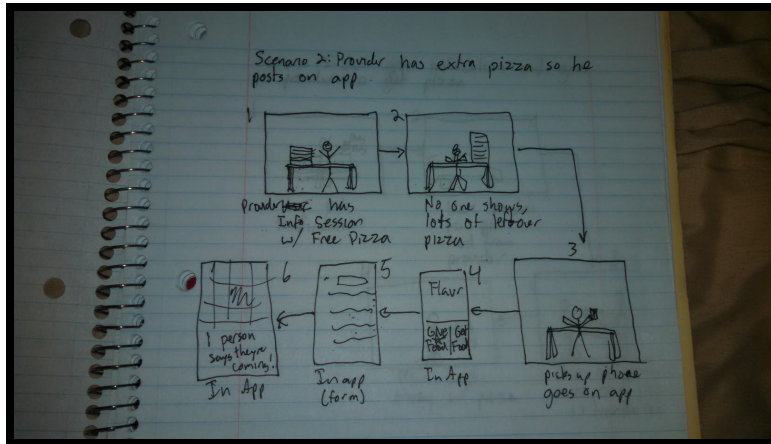 Scenario 2: Provider has extra pizza so he
posts on app.
1
2
Provider has
Info Session
w/ Free Pizza
No one shows,
lots of leftover
pizza
3
picks up phone
goes on app
4
Flavr
Give Food
Get Food
In App
5
In app
(form)
6
1 person
says they're
coming!
In App